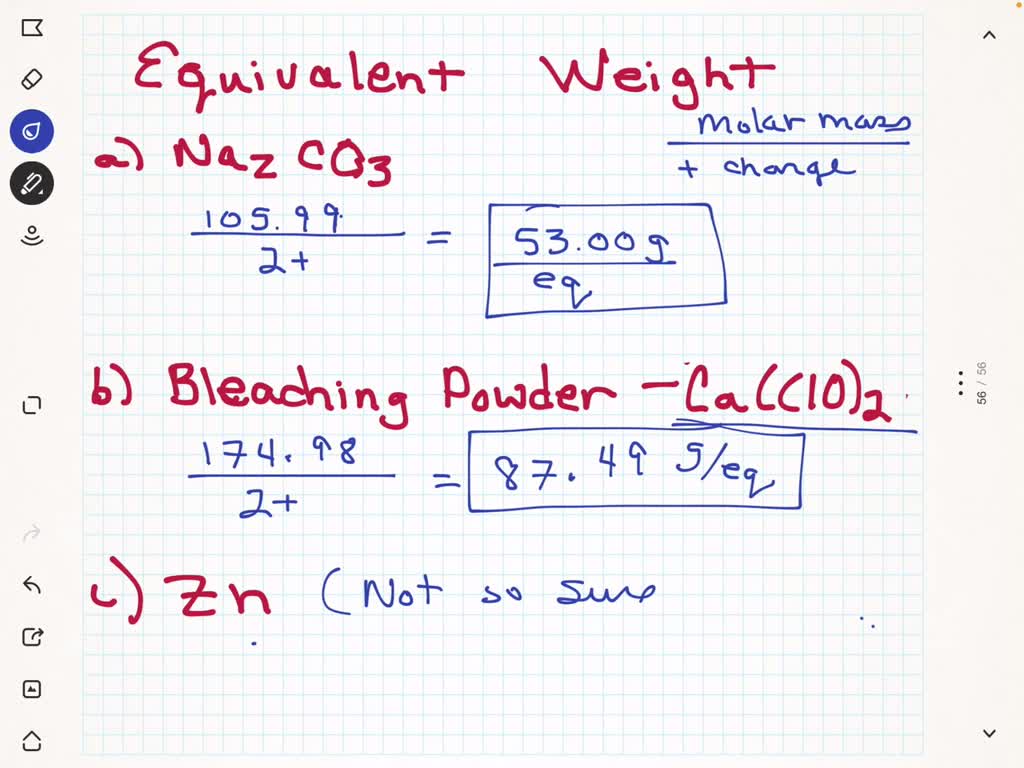 Equivalent Weight
molar mass
+ charge
a) Na2CO3
105.99
2+
=
53.00 g
eq
b) Bleaching Powder - Ca(ClO)2
174.98
2+
= 87.49 g/eq
c) Zn (Not so sure
56 / 56